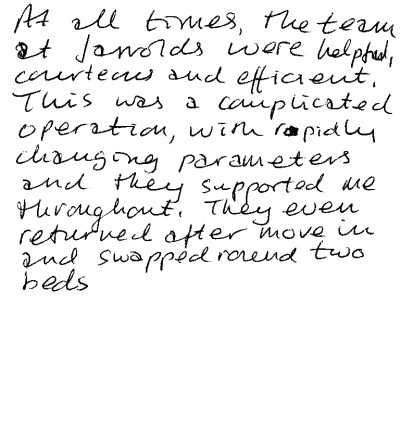 At all times, the team
at Jarrolds were helpful,
courteous and efficient.
This was a complicated
operation, with rapidly
changing parameters
and they supported me
throughout. They even
returned after move in
and swapped round two
beds